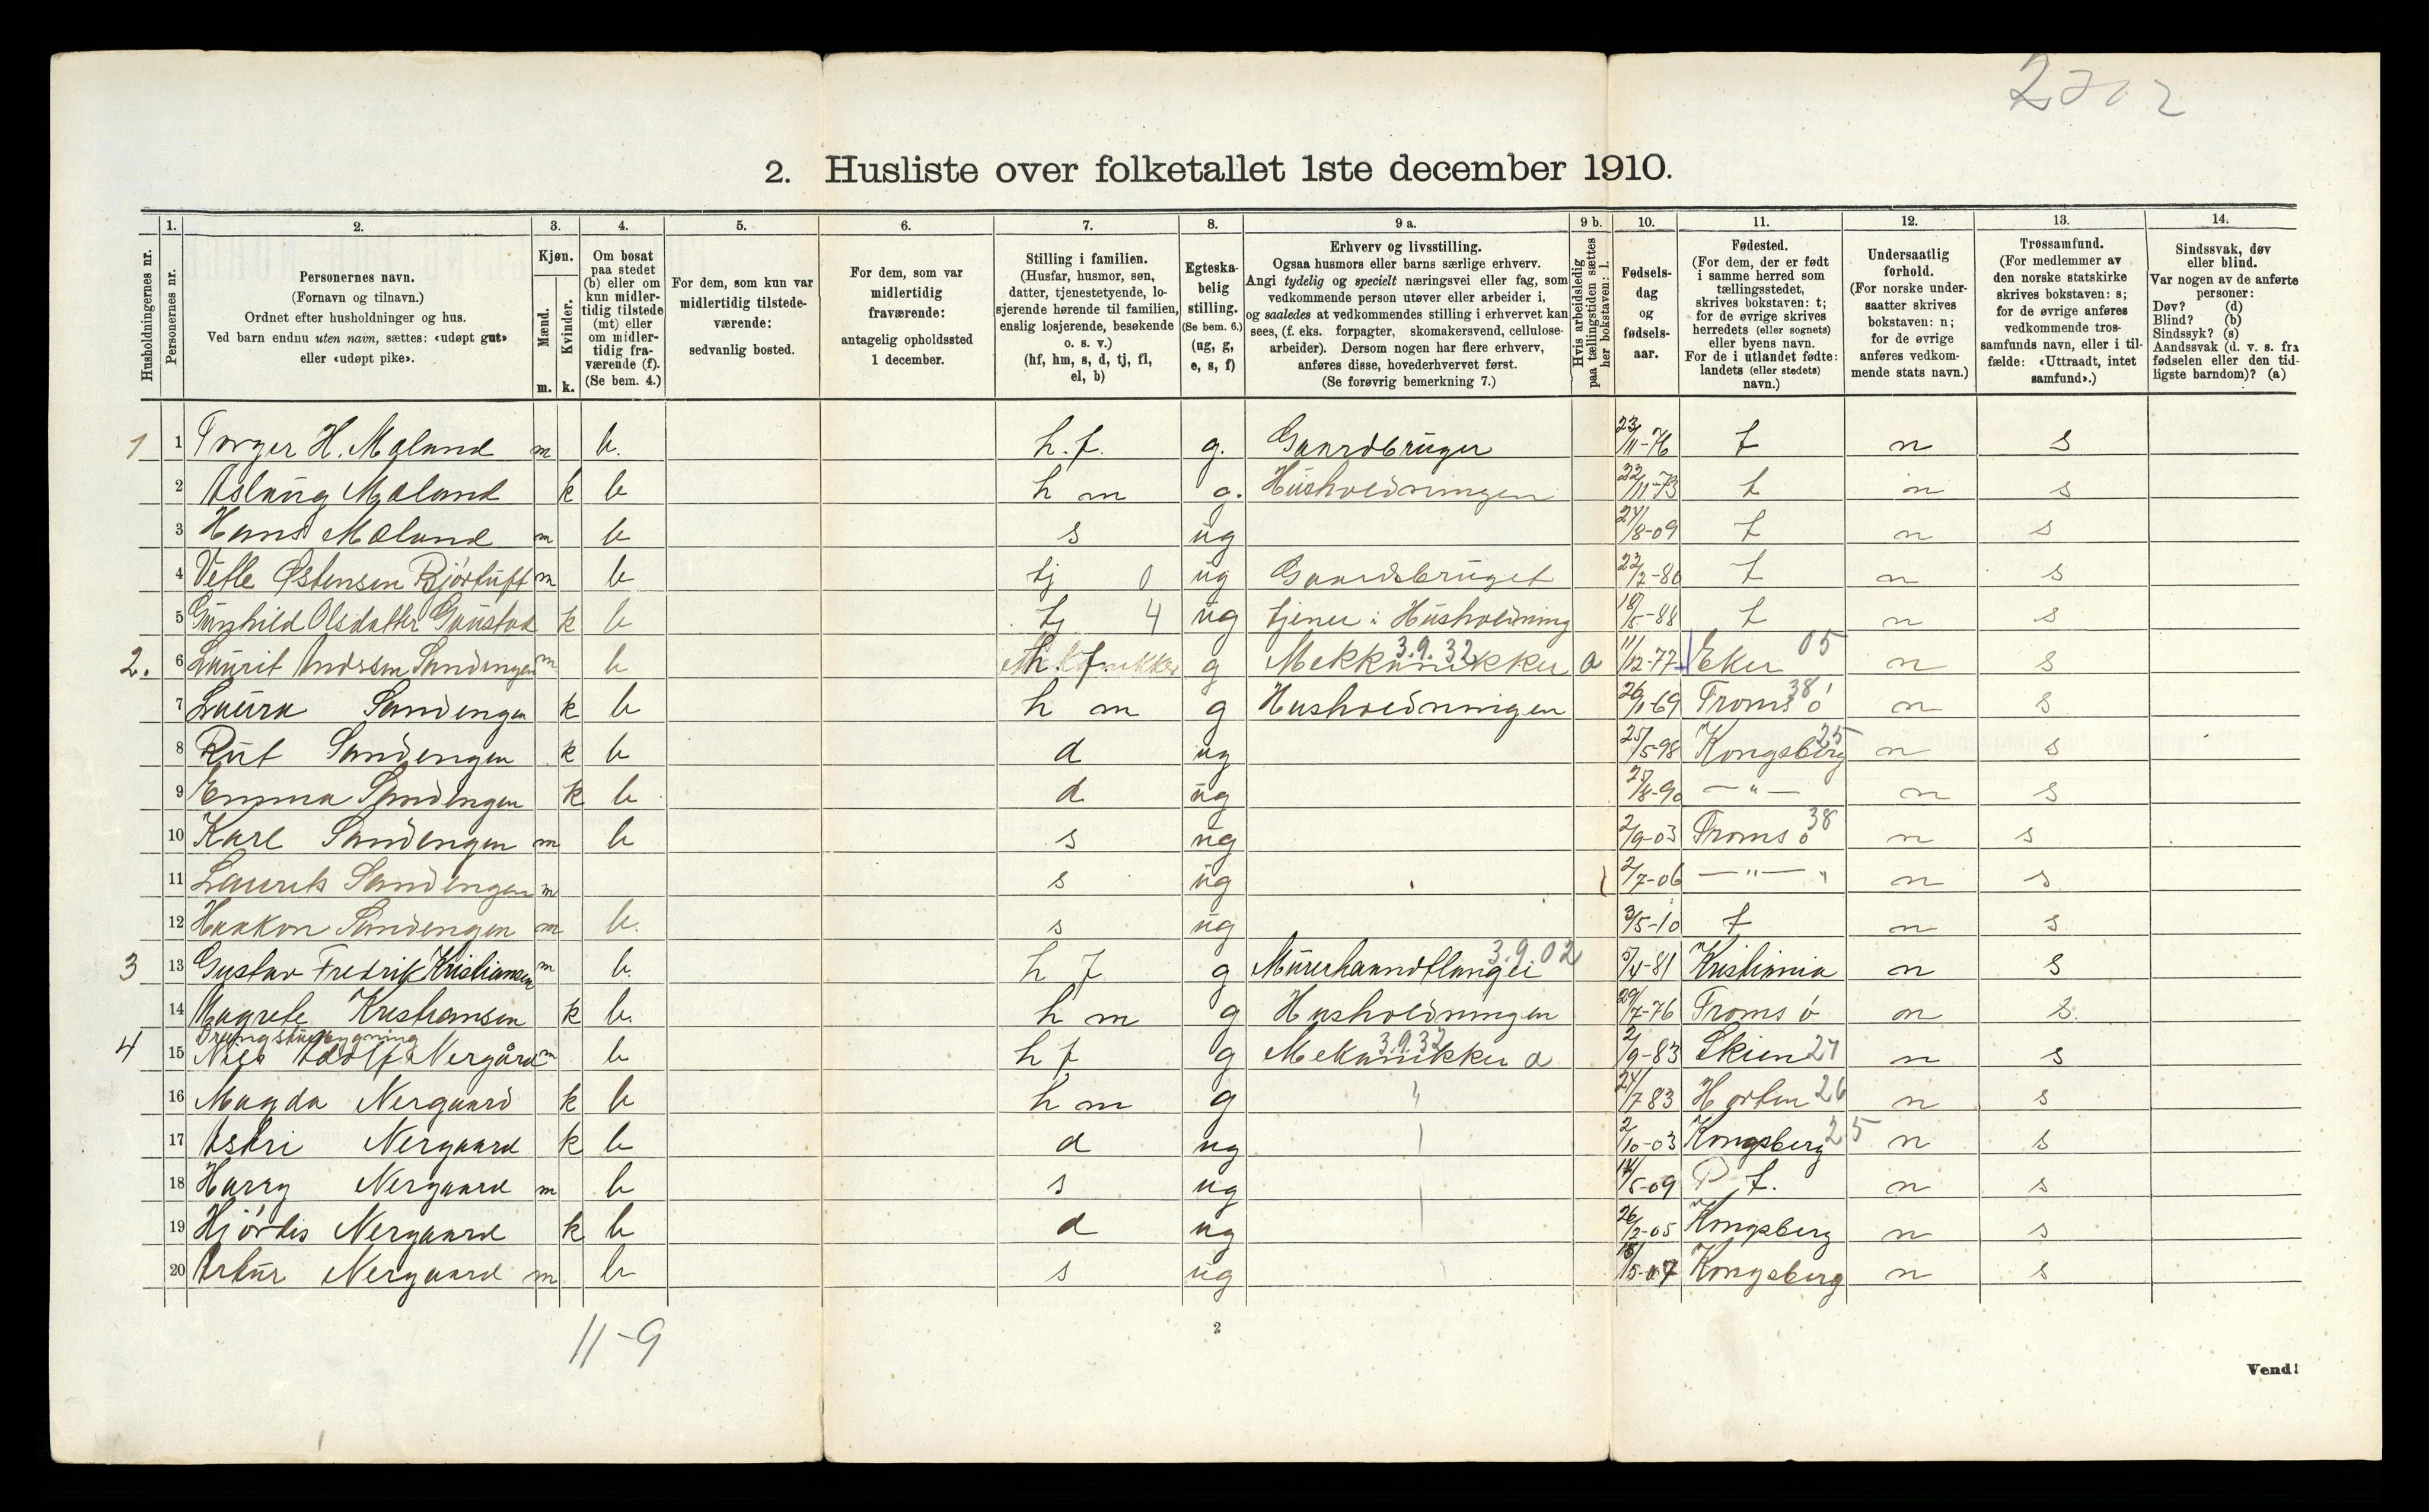 2702
2. Husliste over folketallet 1ste december 1910.
Husholdningernes nr.
1.
Personernes nr.
2.
Personernes navn.
(Fornavn og tilnavn.)
Ordnet efter husholdninger og hus.
Ved barn endnu uten navn, sættes: «udøpt gut»
eller «udøpt pike».
3.
Kjøn.
Mænd.
Kvinder.
m. k.
4.
Om bosat
paa stedet
(b) eller om
kun midler-
tidig tilstede
(mt) eller
om midler-
tidig fra-
værende (f).
(Se bem. 4.)
5.
For dem, som kun var
midlertidig tilstede-
værende:
sedvanlig bosted.
6.
For dem, som var
midlertidig
fraværende:
antagelig opholdssted
1 december.
7.
Stilling i familien.
(Husfar, husmor, søn,
datter, tjenestetyende, lo-
sjerende hørende til familien,
enslig losjerende, besøkende
o. s. v.)
(hf, hm, s, d, tj, fl,
el, b)
8.
Egteska-
belig
stilling.
(Se bem. 6.)
(ug, g,
e, s, f)
9 a.
Erhverv og livsstilling.
Ogsaa husmors eller barns særlige erhverv.
Angi tydelig og specielt næringsvei eller fag, som
vedkommende person utøver eller arbeider i,
og saaledes at vedkommendes stilling i erhvervet kan
sees, (f. eks. forpagter, skomakersvend, cellulose-
arbeider). Dersom nogen har flere erhverv,
anføres disse, hovederhvervet først.
(Se forøvrig bemerkning 7.)
9 b.
Hvis arbeidsledig
paa tællingstiden sættes
her bokstaven: l.
10.
Fødsels-
dag
og
fødsels-
aar.
11.
Fødested.
(For dem, der er født
i samme herred som
tællingsstedet,
skrives bokstaven: t;
for de øvrige skrives
herredets (eller sognets)
eller byens navn.
For de i utlandet fødte:
landets (eller stedets)
navn.)
12.
Undersaatlig
forhold.
(For norske under-
saatter skrives
bokstaven: n;
for de øvrige
anføres vedkom-
mende stats navn.)
13.
Trossamfund.
(For medlemmer av
den norske statskirke
skrives bokstaven: s;
for de øvrige anføres
vedkommende tros-
samfunds navn, eller i til-
fælde: «Uttraadt, intet
samfund».)
14.
Sindssvak, døv
eller blind.
Var nogen av de anførte
personer:
Døv? (d)
Blind? (b)
Sindssyk? (s)
Aandssvak (d. v. s. fra
fødselen eller den tid-
ligste barndom)? (a)
1 1 Torger H. Mæland m b. h.f. g. Gaardbruger 23/11-76 t n s
2 Aslaug Mæland k b h m g. Husholdningen 22/11-73 t n s
3 Hans Mæland m b s ug 24/8-09 t n s
4 Vetle Østensen Bjørtuft m b tj 0 ug Gaardsbruget 22/2-80 t n s
5 Gunhild Olsdatter Gaustad k b tj 4 ug tjener i Husholdning 18/5-88 t n s
2. 6 Laurit Andssen Sandengen m b h f g Mekkanikker 3.9.32 a 11/12-77 Eker 05 n s
7 Laura Sandengen k b h m g Husholdningen 26/1-69 Tromsö 38 n s
8 Rut Sandengen k b d ug 25/5-98 Kongsberg 25 n s
9 Emma Sandengen k b d ug 25/8-90 — " — n s
10 Karl Sandengen m b s ug 2/9-03 Tromsö 38 n s
11 Laurits Sandengen m s ug 2/7-06 — " — n s
12 Haakon Sandengen m b. s ug 3/5-10 t n s
3 13 Gustav Fredrik Kristiansen m b. h f g Murerhaandtlanger 3.9.02 5/4-81 Kristiania n s
14 Magrete Kristiansen k b. h m g Husholdningen 29/7-76 Tromsö n s.
Drengstuebygning
4 15 Nils Adolf Nergård m b h f g Mekanikker 3.9.32 a 2/9-83 Skien 27 n s
16 Magda Nergaard k b h m g " 24/7 83 Horten 26 n s
17 Astri Nergaard k b d ug 2/10-03 Kongsberg 25 n s
18 Harry Nergaard m b s ug 14/5-09 t. n s
19 Hjördis Nergaard k b d ug 26/2-05 Kongsberg n s
20 Artur Nergaard m b s ug 18/5-07 Kongsberg n s
11-9
2
Vend!